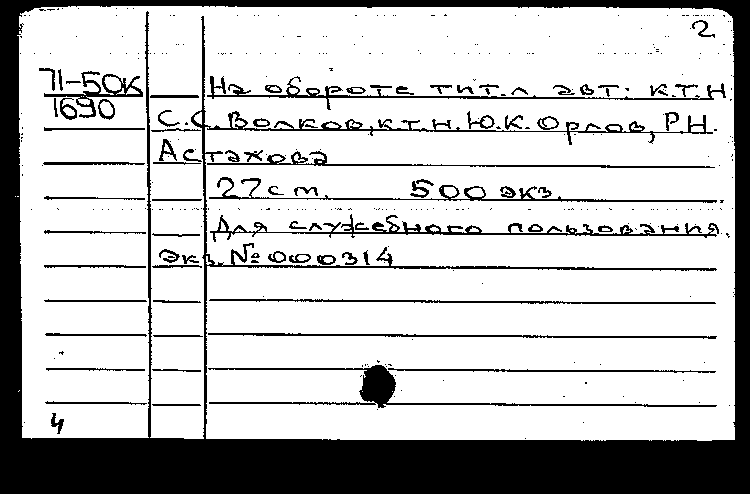 2
71-50К На обороте тит.л. авт: к.т.н
1690
С.С. Волков, к.т.н. Ю.К. Орлов, Р.Н.
Астахова
27 см. 500 экз.
Для служебного пользования.
экз. №000314
4